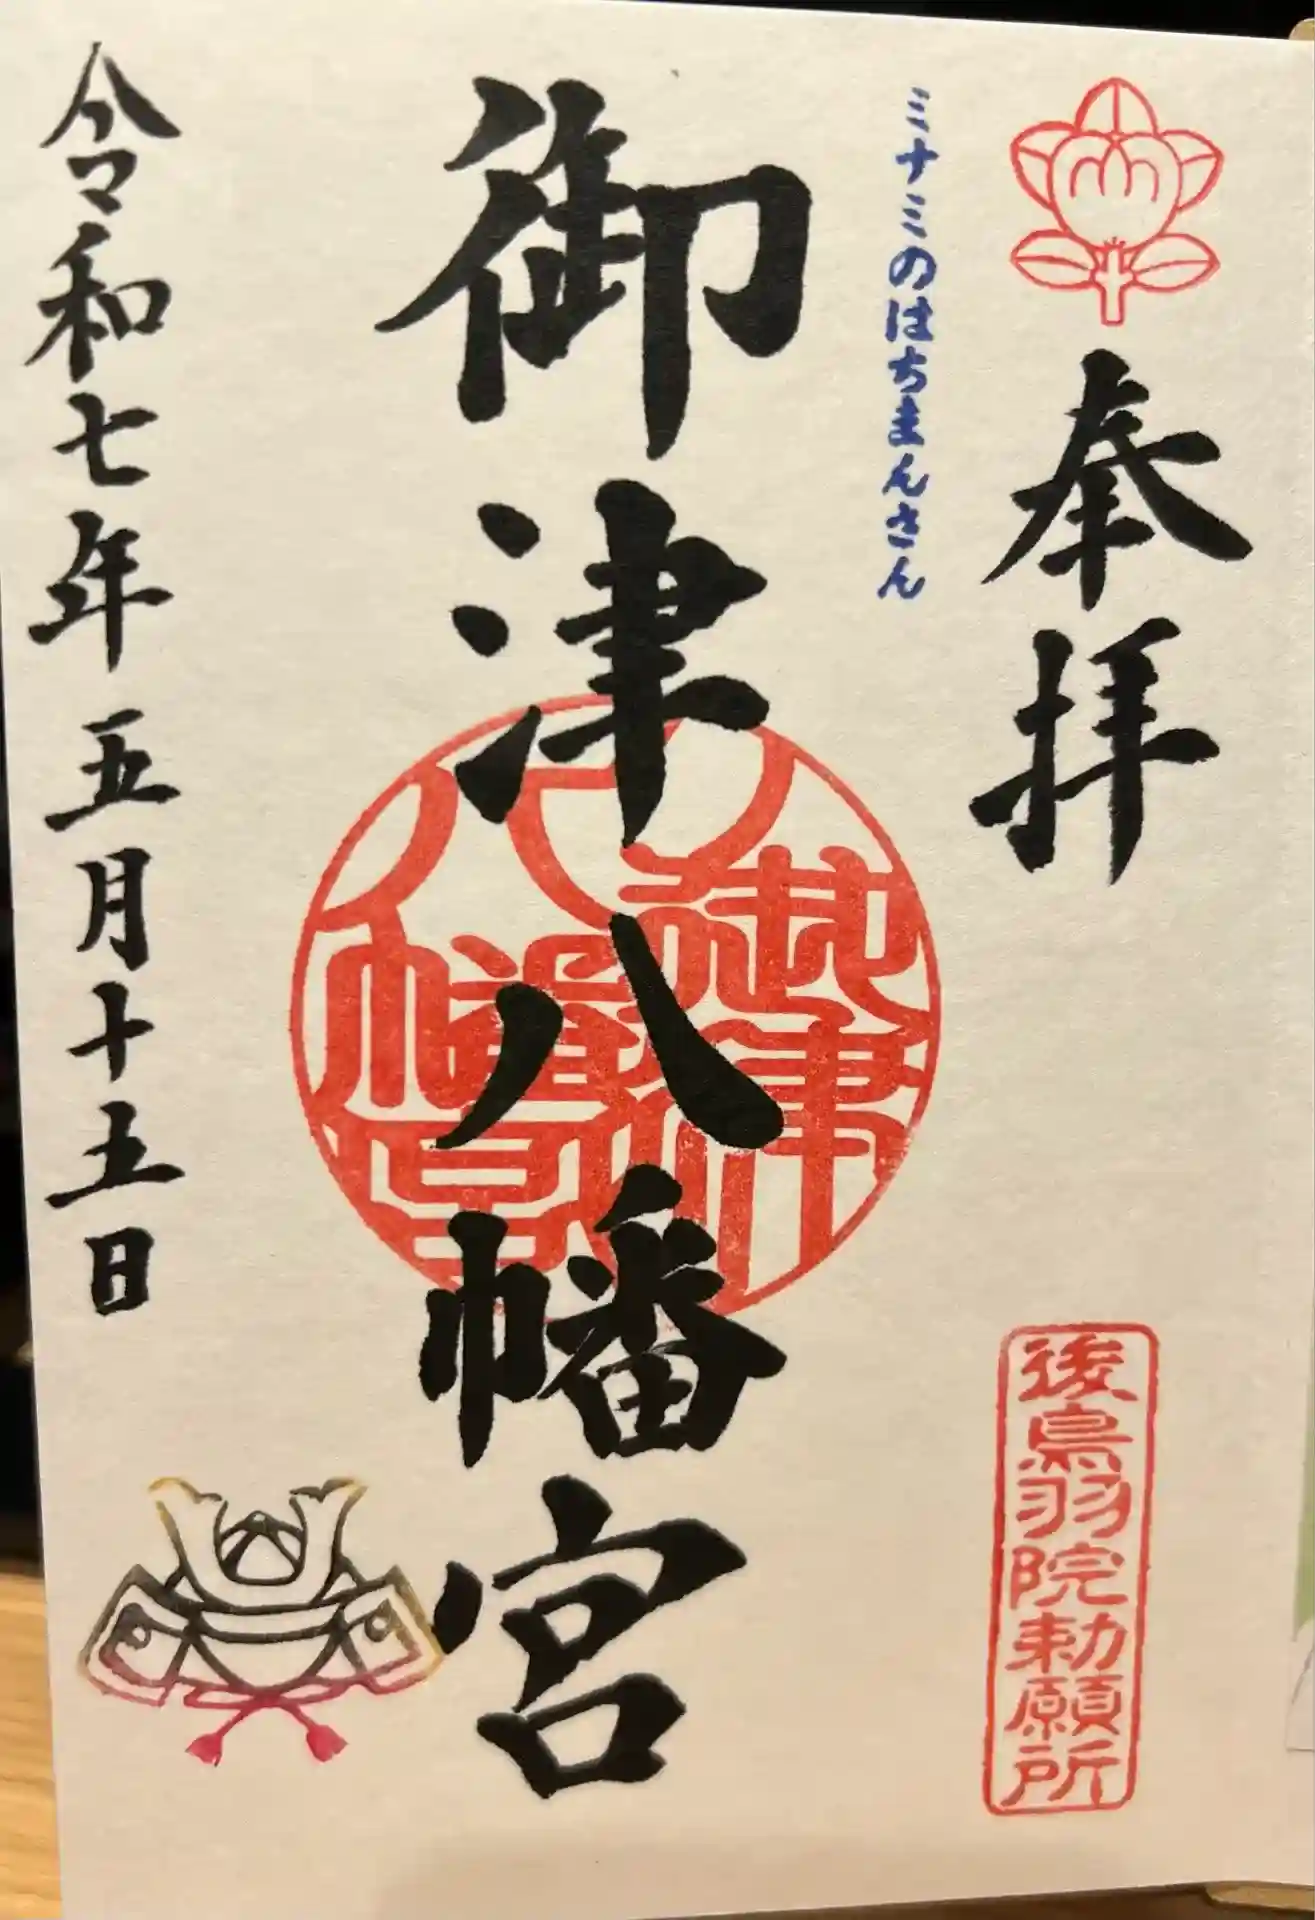 奉拝
後鳥羽院勅願所
ミナミのはちまんさん
御津八幡宮
御津
八幡宮
令和七年五月十五日